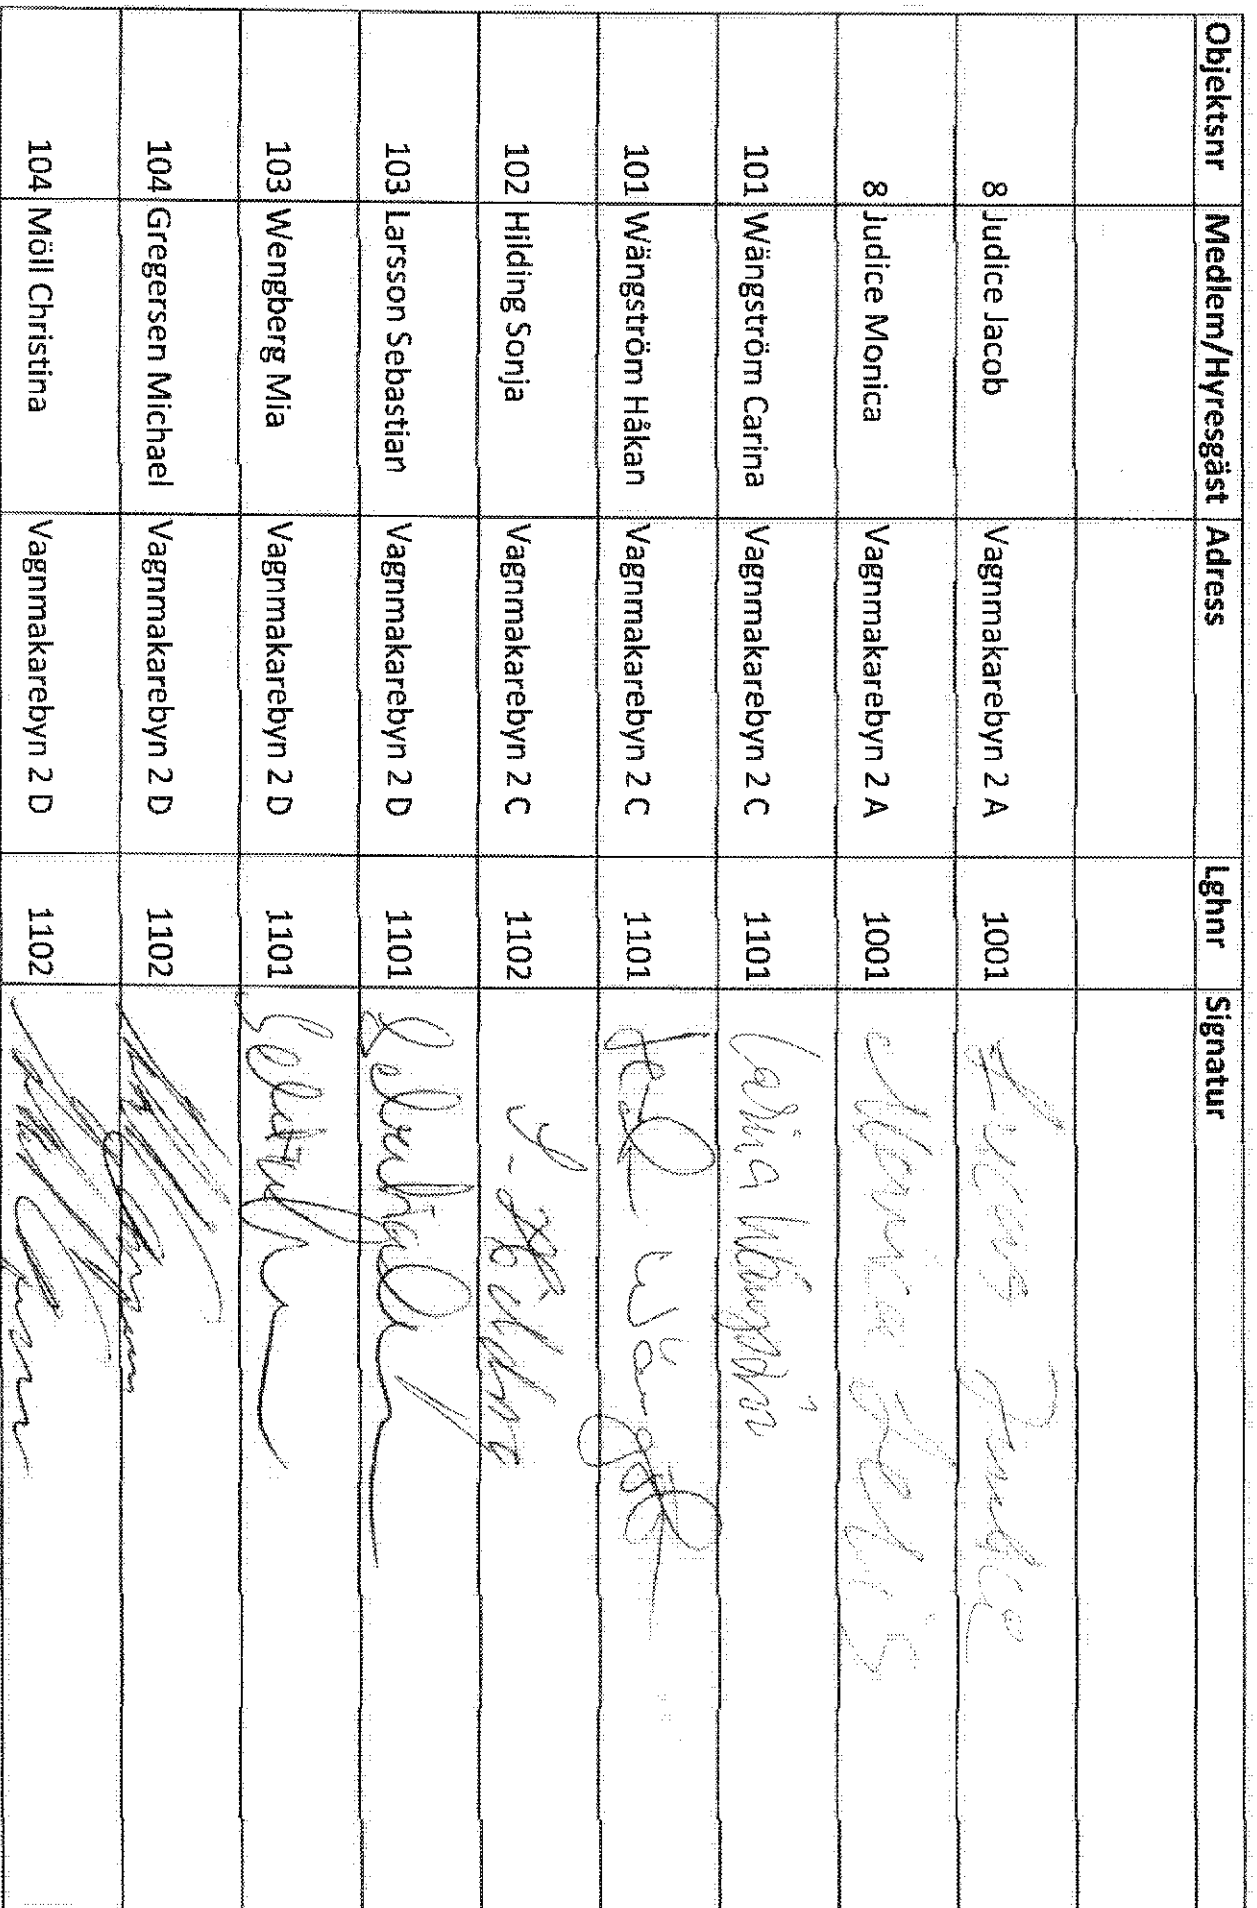 Objektsnr Medlem/Hyresgäst Adress Lghnr Signatur
8 Judice Jacob Vagnmakarebyn 2 A 1001
8 Judice Monica Vagnmakarebyn 2 A 1001 Monica
101 Wängström Carina Vagnmakarebyn 2 C 1101 Carina
101 Wängström Håkan Vagnmakarebyn 2 C 1101
102 Hilding Sonja Vagnmakarebyn 2 C 1102
103 Larsson Sebastian Vagnmakarebyn 2 D 1101
103 Wengberg Mia Vagnmakarebyn 2 D 1101
104 Gregersen Michael Vagnmakarebyn 2 D 1102
104 Möll Christina Vagnmakarebyn 2 D 1102